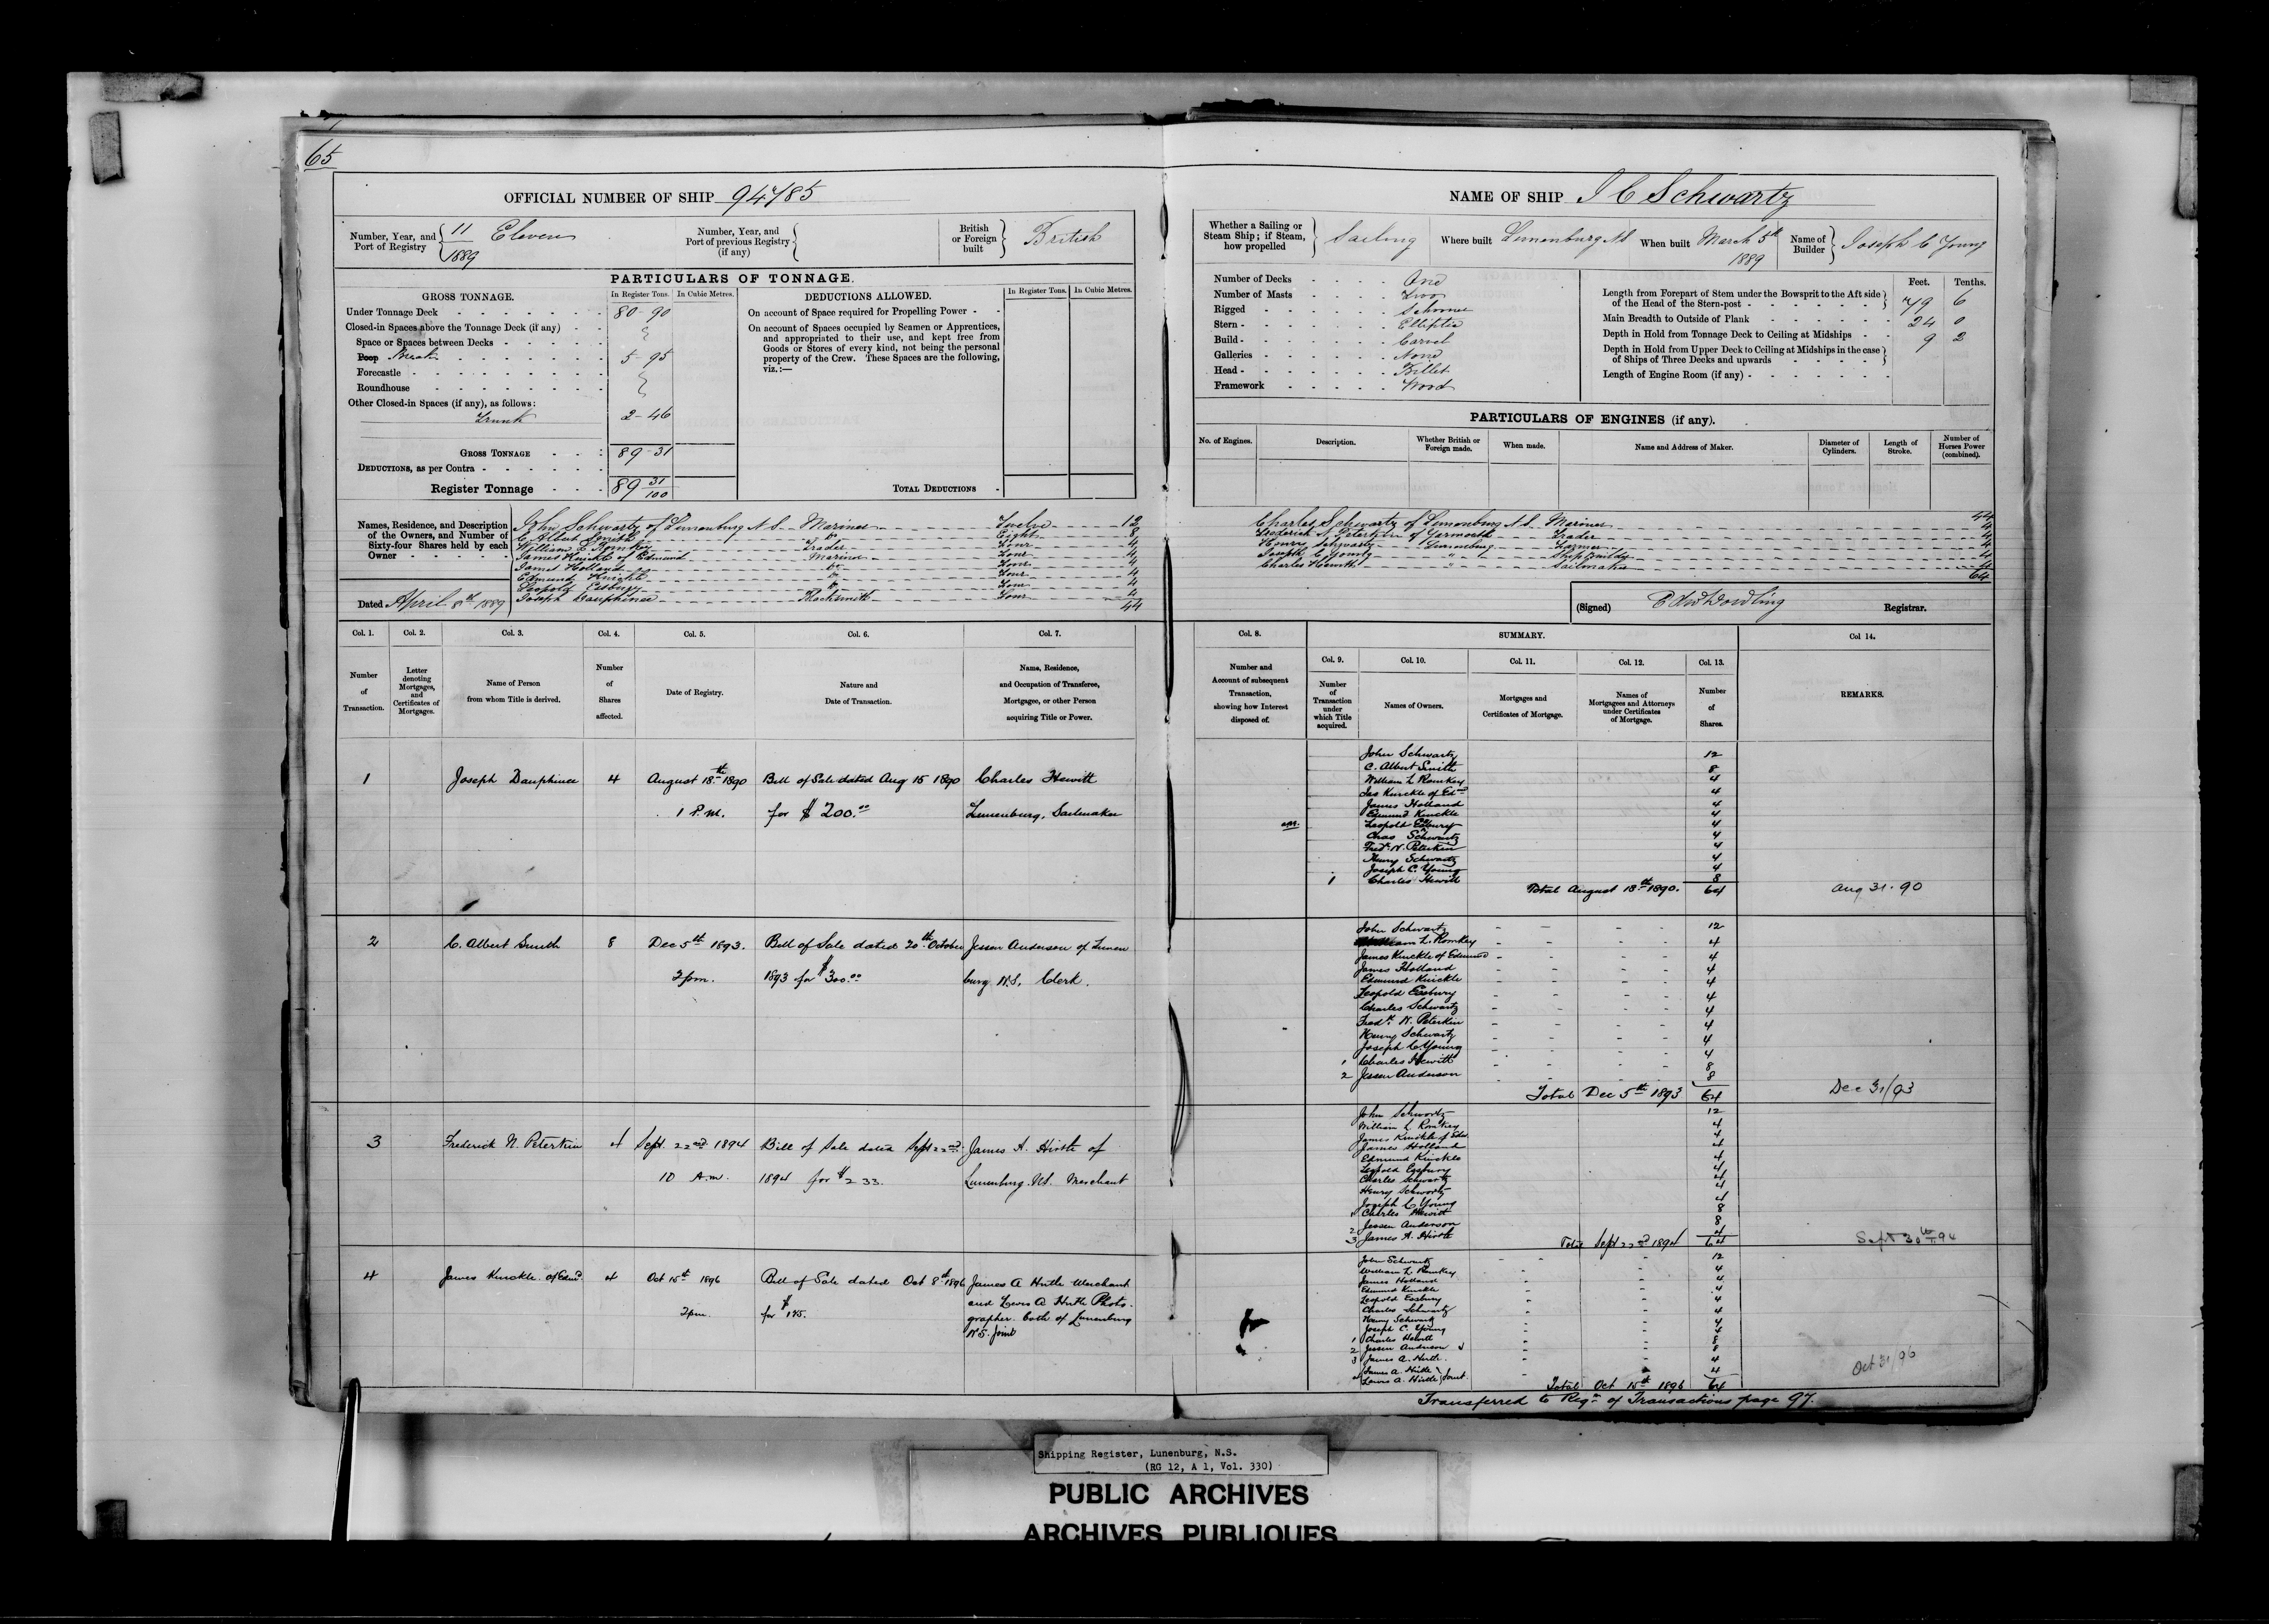 65
OFFICIAL NUMBER OF SHIP 94785
Number, Year, and Port of Registry 11 Eleven 1889
Number, Year, and Port of previous Registry (if any)
British or Foreign built British
PARTICULARS OF TONNAGE.
GROSS TONNAGE. In Register Tons. In Cubic Metres.
Under Tonnage Deck 80-90
Closed-in Spaces above the Tonnage Deck (if any)
Space or Spaces between Decks
Poop Break 5-95
Forecastle
Roundhouse
Other Closed-in Spaces (if any), as follows:
Trunk 2-46
GROSS TONNAGE 89-31
DEDUCTIONS, as per Contra
Register Tonnage 89 31/100
DEDUCTIONS ALLOWED. In Register Tons. In Cubic Metres.
On account of Space required for Propelling Power
On account of Spaces occupied by Seamen or Apprentices,
and appropriated to their use, and kept free from
Goods or Stores of every kind, not being the personal
property of the Crew. These Spaces are the following,
viz.:—
TOTAL DEDUCTIONS
Names, Residence, and Description
of the Owners, and Number of
Sixty-four Shares held by each
Owner
John Schwartz of Lunenburg N S Mariner Twelve 12
C Albert Smith do Eight 8
William L Romkey Trader Four 4
James Knickle of Edmund Mariner Four 4
James Holland do Four 4
Edmund Knickle do Four 4
Leopold Eisbury do Four 4
Joseph Dauphinee Blacksmith Four 4
44
Dated April 8th 1889
Col. 1. Col. 2. Col. 3. Col. 4. Col. 5. Col. 6. Col. 7.
Number of Transaction.
Letter denoting Mortgages, and Certificates of Mortgages.
Name of Person from whom Title is derived.
Number of Shares affected.
Date of Registry.
Nature and Date of Transaction.
Name, Residence, and Occupation of Transferee, Mortgagee, or other Person acquiring Title or Power.
1 Joseph Dauphinee 4 August 18th 1890 Bill of Sale dated Aug 15 1890 Charles Hewitt
1 P.M. for $200.00 Lunenburg, Sailmaker
2 C. Albert Smith 8 Dec 5th 1893. Bill of Sale dated 20th October Jessen Anderson of Lunen
2 pm. 1893 for $300.00 burg N.S. Clerk.
3 Frederick N. Peterkin 4 Sept. 22nd 1894 Bill of Sale dated Sept 22nd James A. Hirtle of
10 A.m. 1894 for $233. Lunenburg. NS. Merchant
4 James Knickle of Edmd. 4 Oct 15th 1896 Bill of Sale dated Oct 8th 1896 James A Hirtle Merchant
2pm. for $175. and Lewis A Hirtle Photo-
grapher. both of Lunenburg
N S. Joint
NAME OF SHIP J C Schwartz
Whether a Sailing or Steam Ship; if Steam, how propelled Sailing
Where built Lunenburg N S
When built March 5th 1889
Name of Builder Joseph C Young
Number of Decks One
Number of Masts Two
Rigged Schooner
Stern Elliptic
Build Carvel
Galleries None
Head Billet
Framework Wood
Feet. Tenths.
Length from Forepart of Stem under the Bowsprit to the Aft side
of the Head of the Stern-post 79 6
Main Breadth to Outside of Plank 24 0
Depth in Hold from Tonnage Deck to Ceiling at Midships 9 2
Depth in Hold from Upper Deck to Ceiling at Midships in the case
of Ships of Three Decks and upwards
Length of Engine Room (if any)
PARTICULARS OF ENGINES (if any).
No. of Engines. Description. Whether British or Foreign made. When made. Name and Address of Maker. Diameter of Cylinders. Length of Stroke. Number of Horses Power (combined).
44
Charles Schwartz of Lunenburg N S. Mariner 4
Frederick N. Peterkin of Yarmouth Trader 4
Henry Schwartz Lunenburg Farmer 4
Joseph C Young " Shipbuilder 4
Charles Hewitt " Sailmaker 4
64
(Signed) Edw Dowling Registrar.
Col. 8. SUMMARY. Col 14.
Col. 9. Col. 10. Col. 11. Col. 12. Col. 13.
Number and Account of subsequent Transaction, showing how Interest disposed of.
Number of Transaction under which Title acquired.
Names of Owners.
Mortgages and Certificates of Mortgage.
Names of Mortgagees and Attorneys under Certificates of Mortgage.
Number of Shares.
REMARKS.
John Schwartz 12
C. Albert Smith 8
William L Romkey 4
Jas Knickle of Edmd 4
James Holland 4
Edmund Knickle 4
Leopold Eisbury 4
Chas Schwartz 4
Fredk N. Peterkin 4
Henry Schwartz 4
Joseph C. Young 4
1 Charles Hewitt 8
Total August 18th 1890. 64 Aug 31. 90
John Schwartz 12
William L. Romkey 4
James Knickle of Edmund 4
James Holland 4
Edmund Knickle 4
Leopold Eisbury 4
Charles Schwartz 4
Fredk N. Peterkin 4
Henry Schwartz 4
Joseph C. Young 4
1 Charles Hewitt 8
2 Jessen Anderson 8
Total Dec 5th 1893 64 Dec 31/93
John Schwartz 12
William L Romkey 4
James Knickle of Edd 4
James Holland 4
Edmund Knickle 4
Leopold Eisbury 4
Charles Schwartz 4
Henry Schwartz 4
Joseph C Young 4
1 Charles Hewitt 8
2 Jessen Anderson 8
3 James A. Hirtle 4
Total Sept 22nd 1894 64 Sept 30th 94
John Schwartz 12
William L Romkey 4
James Holland 4
Edmund Knickle 4
Leopold Eisbury 4
Charles Schwartz 4
Henry Schwartz 4
Joseph C. Young 4
1 Charles Hewitt 8
2 Jessen Anderson 8
3 James A. Hirtle 4
4 James A. Hirtle
Lewis A. Hirtle Joint 4
Total Oct 15th 1896 64 Oct 31/96
Transferred to Regr of Transactions page 97.
Shipping Register, Lunenburg, N.S.
(RG 12, A 1, Vol. 330)
PUBLIC ARCHIVES
ARCHIVES PUBLIQUES